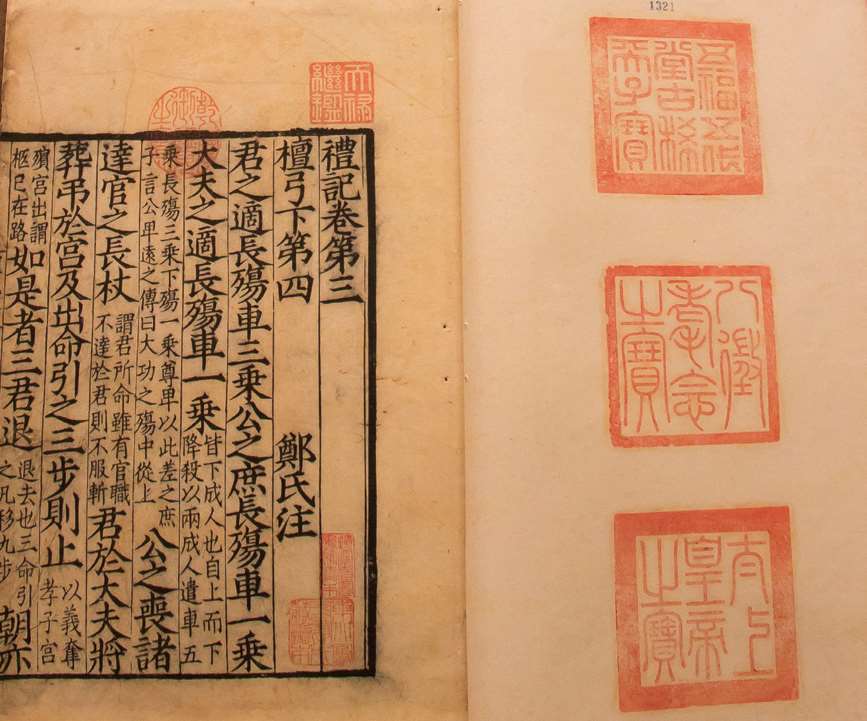 1321
五福五代
堂古稀
天子寶
八徵
耄念
之寶
太上
皇帝
之寶
天祿
繼鑑
禮記卷第三
檀弓下第四 鄭氏注
君之適長殤車三乘公之庶長殤車一乘
大夫之適長殤車一乘 皆下成人也自上而下 降殺以兩成人遣車五
乘長殤三乘下殤一乘尊卑以此差之庶 子言公卑遠之傳曰大功之殤中從上 公之喪諸
達官之長杖 謂君所命雖有官職 不達於君則不服斬 君於大夫將
葬弔於宮及出命引之三步則止 以義奪 孝子宮
殯宮出謂 柩已在路 如是者三君退 退去也三命引 之凡移九步 朝亦